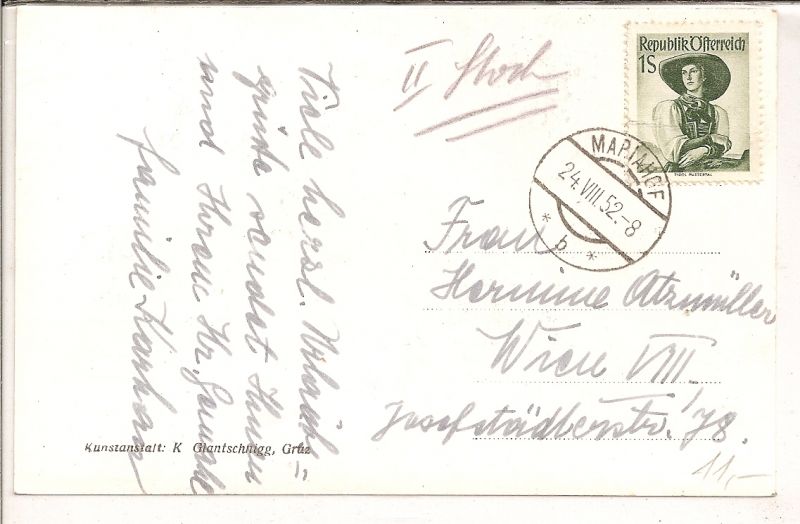 Republik Österreich
1S
TIROL PUSTERTAL
MARIAHOF
24.VIII.52.-8
* b *
II Stock
Frau
Hermine Atzmüller
Wien VIII.
Josefstädterstr. 78.
11,-
Viele herzl. Urlaub=
grüße sendet Ihnen
und Ihrem Hr. Gemahl
Familie
Kunstanstalt: K Glantschnigg, Graz